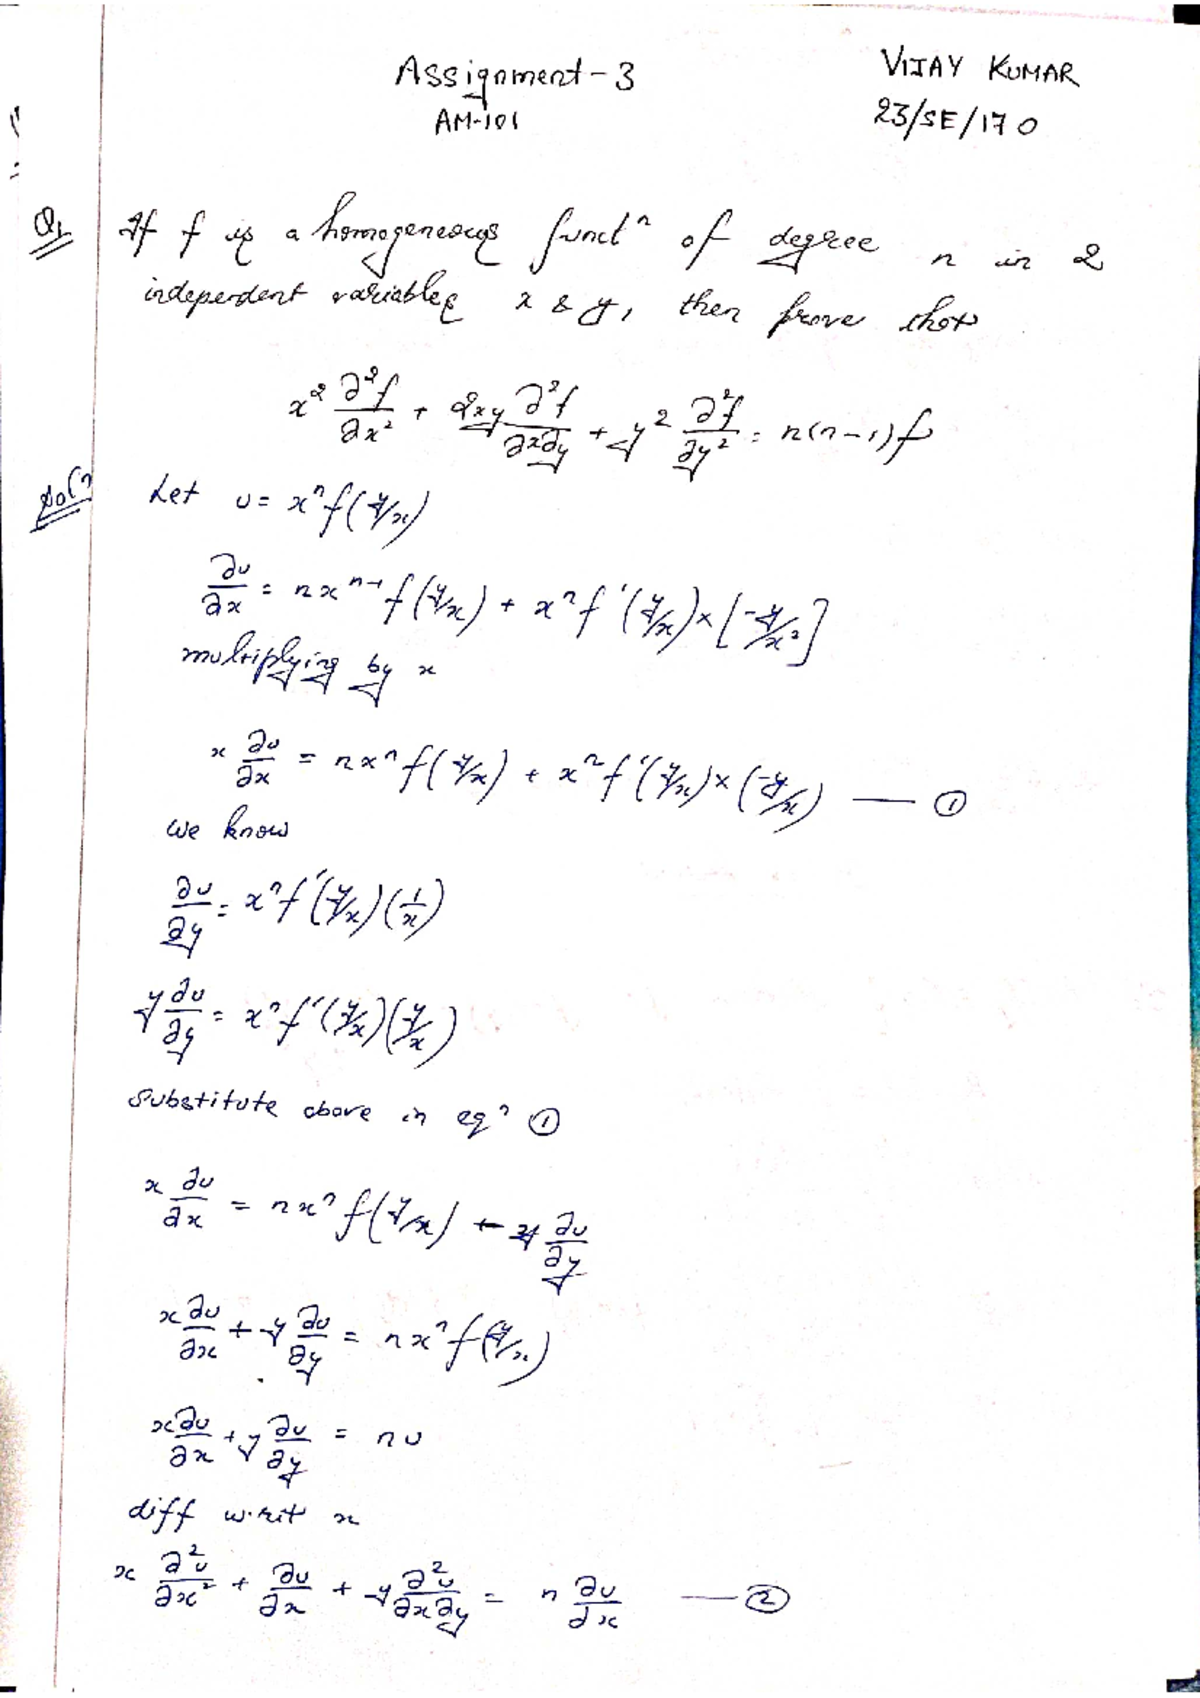 Assignment-3
AM-101
VIJAY KUMAR
23/SE/170
Q1 If f is a homogeneous functⁿ of degree n in 2
independent variables x & y, then prove that
x² ∂²f/∂x² + 2xy ∂²f/∂x∂y + y² ∂²f/∂y² = n(n-1)f
Solⁿ Let u = xⁿf(y/x)
∂u/∂x = nxⁿ⁻¹f(y/x) + xⁿf'(y/x)×[-y/x²]
multiplying by x
x ∂u/∂x = nxⁿf(y/x) + xⁿf'(y/x)×(-y/x) — ①
we know
∂u/∂y = xⁿf'(y/x)(1/x)
y ∂u/∂y = xⁿf'(y/x)(y/x)
Substitute above in eqⁿ ①
x ∂u/∂x = nxⁿf(y/x) - y ∂u/∂y
x ∂u/∂x + y ∂u/∂y = nxⁿf(y/x)
x ∂u/∂x + y ∂u/∂y = nu
diff w.r.t x
x ∂²u/∂x² + ∂u/∂x + y ∂²u/∂x∂y = n ∂u/∂x — ②